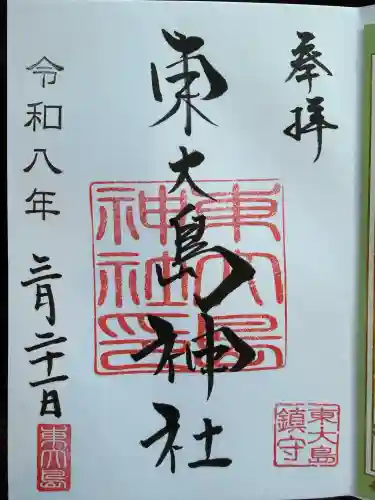 奉拝
東大島神社
東大島神社印
東大島鎮守
令和八年
三月二十一日
東大島